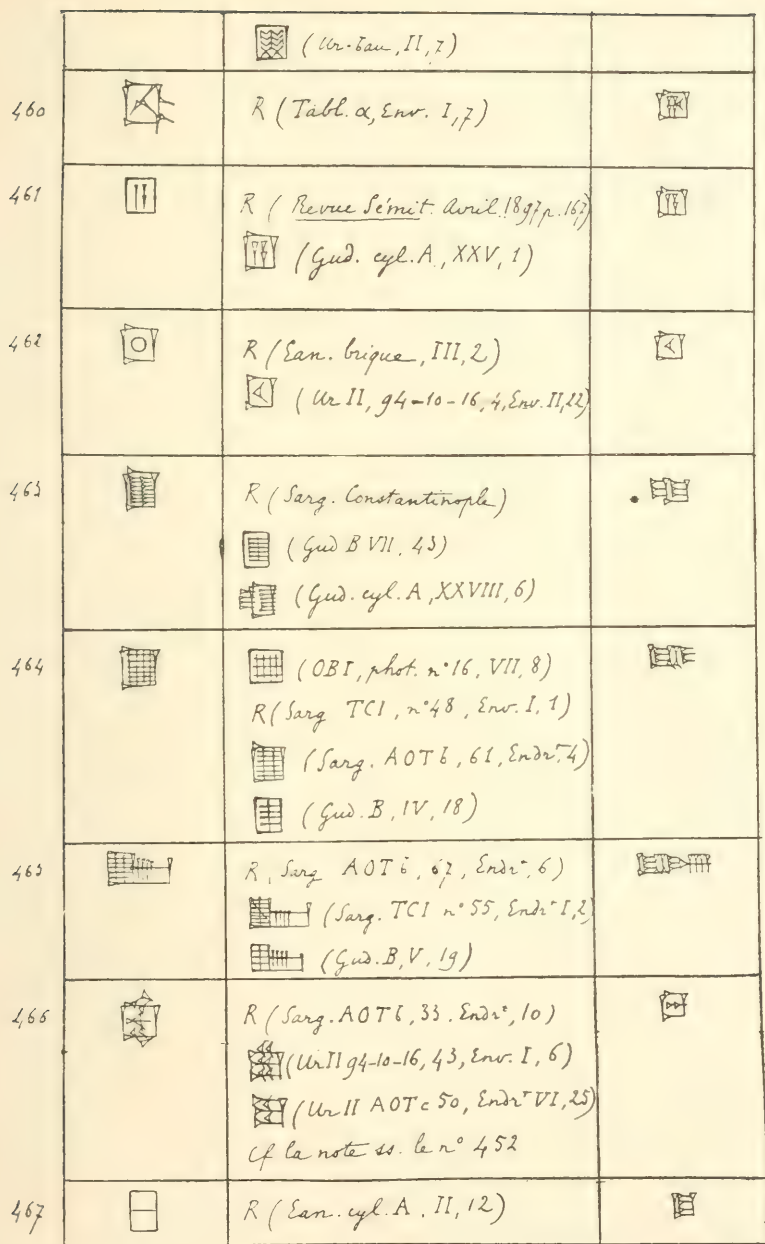 (Ur-Bau, II, 7)
460 R (Tabl. α, Env. I, 7)
461 R (Revue Sémit. Avril 1897 p. 167)
(Gud. cyl. A, XXV, 1)
462 R (Ean. brique, III, 2)
(Ur II, 94-10-16, 4, Env. II, 22)
463 R (Sarg. Constantinople)
(Gud B VII, 43)
(Gud. cyl. A, XXVIII, 6)
464 (OBI, phot. n° 16, VII, 8)
R (Sarg TCI, n° 48, Env. I, 1)
(Sarg. AOTb, 61, Endrt, 4)
(Gud. B, IV, 18)
465 R, Sarg AOTb, 67, Endrt, 6)
(Sarg. TCI n° 55, Endrt I, 2)
(Gud. B, V, 19)
466 R (Sarg. AOTb, 33. Endrt, 10)
(Ur II 94-10-16, 43, Env. I, 6)
(Ur II AOTc 50, Endrt VI, 25)
Cf la note ss. le n° 452
467 R (Ean. cyl. A, II, 12)